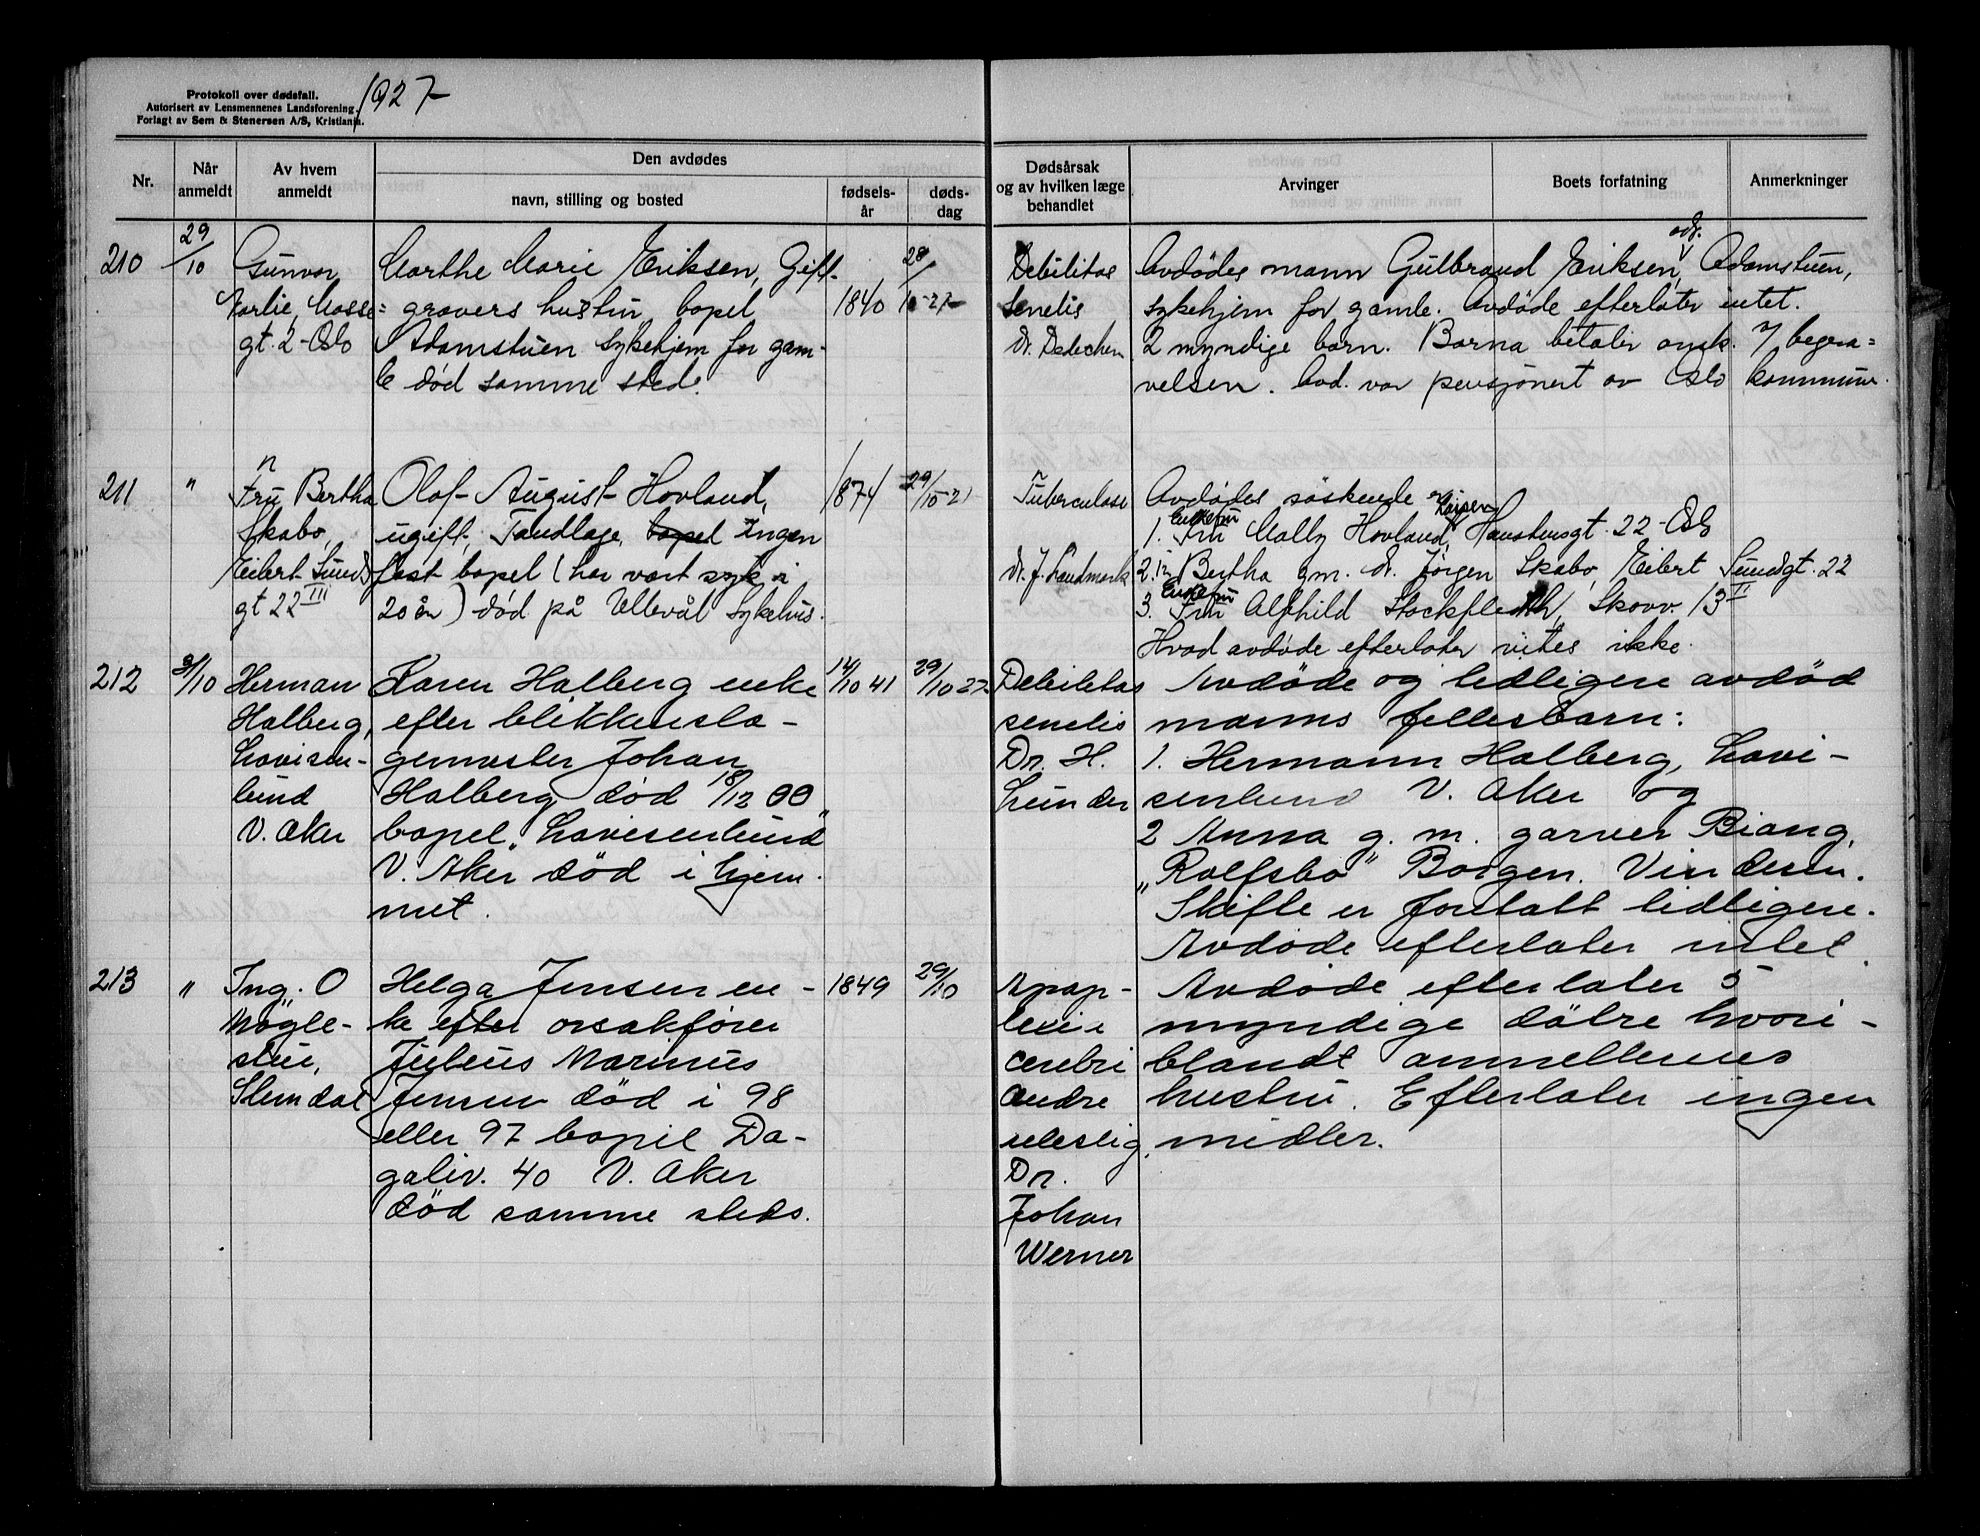 Protokoll over dødsfall.
Autorisert av Lensmennenes Landsforening.
Forlagt av Sem & Stenersen A/S, Kristiania.
1927
Nr.
Når anmeldt
Av hvem anmeldt
Den avdødes
navn, stilling og bosted
fødsels-år
døds-dag
Dødsårsak og av hvilken læge behandlet
Arvinger
Boets forfatning
Anmerkninger
210
29/10
Gunvor
Mosse=
gt. 2 - Oslo
Marthe Marie Eriksen, Gift-
gravers hustru, bopel
Adamstuen sykehjem for gam-
le død samme sted.
1840
28/10-27
Debilitas
senelis
dr. Dedechen
Avdødes mann Gulbrand Eriksen, adr. Adamstuen,
sykehjem for gamle. Avdøde efterlater intet.
2 myndige barn. Barna betaler omk. v/ begra=
velsen. Avd. var pensjonert av Oslo kommune.
211
"
Fru Bertha
Skabo,
Eilert Sunds
gt 22 III
Olaf August Hovland,
ugift, Tandlæge, bopel Ingen
fast bopel (har vært syk i
20 år) død på Ullevål sykehus.
1874
29/10-27
Tuberculose
dr. J. Landmark
Avdødes søskende er
1. Enkefru Fru Mally Hovland Kaisen, Haustensgt. 22 - Oslo
2. Bertha gm. dr. Jørgen Skabo, Eilert Sundgt. 22
3. Enkefru Fru Alfhild Stockfleth, Skovv. 13 II
Hvad avdøde efterlater vites ikke.
212
31/10
Herman
Halberg,
Lovisen-
lund
V. Aker
Karen Halberg enke
efter blikkensla-
germester Johan
Halberg død 18/12 00
bopel „Lovisenlund"
V. Aker død i hjem-
met.
14/10 41
29/10 27
Debiletas
senelis
Dr. H.
Lunder
Avdøde og tidligere avdød
manns fellesbarn:
1. Hermann Halberg, Lovi-
senlund V. Aker og
2 Anna g. m. garver Biong,
„Rolfsbo" Borgen. Vinderen.
Skifte er foretatt tidligere.
Avdøde efterlater intet.
213
"
Ing. O
Møgle-
stue,
Slemdal
Helga Jensen en-
ke efter orsakfører
Julius Marinus
Jensen død i 98
eller 97 bopel Da-
galiv. 40 V. Aker
død samme steds.
1849
29/10
Apop-
lexia
cerebri
andre
Dr.
Johan
Werner
Avdøde efterlater 5
myndige døtre hvori-
blandt anmelderens
hustru. Efterlater ingen
midler.